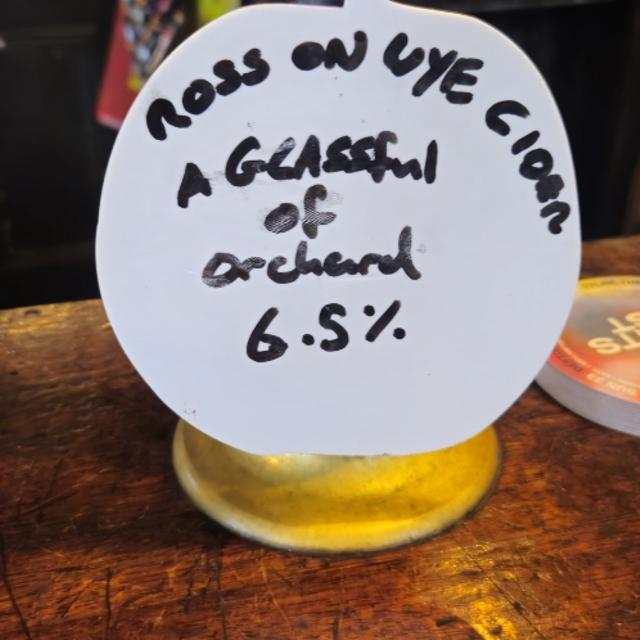 ROSS ON WYE CIDER
A GLASSful
of
orchard
6.5%